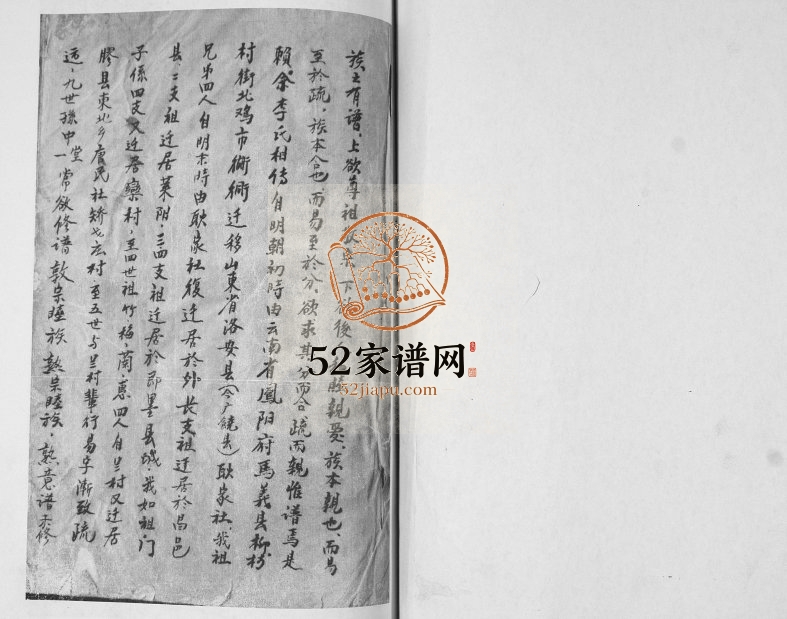 族之有谱,上欲尊祖 下 後 親愛,族本親也,而易
至於疏,族本合也,而易至於分,欲求其分而合,疏而親惟谱焉是
賴余李氏相傳自明朝初時由云南省鳳阳府馬義县柳树
村街北鸡市衚衕迁移山東省洛安县(今广饒县)耿家社,我祖
兄弟四人自明末時由耿家社復迁居於外长支祖迁居於昌邑
县,二支祖迁居莱阳,三四支祖迁居於即墨县城,我如祖门
子係四支又迁居欒村,至四世祖竹,梅,蘭,惠四人自兰村又迁居
膠县東北乡唐民社矫戈庄村至五世与兰村辈行易字漸致疏
远,九世孫中堂一常欲修谱敦宗睦族敦宗睦族,孰意谱未修
52家谱网
52jiapu.com